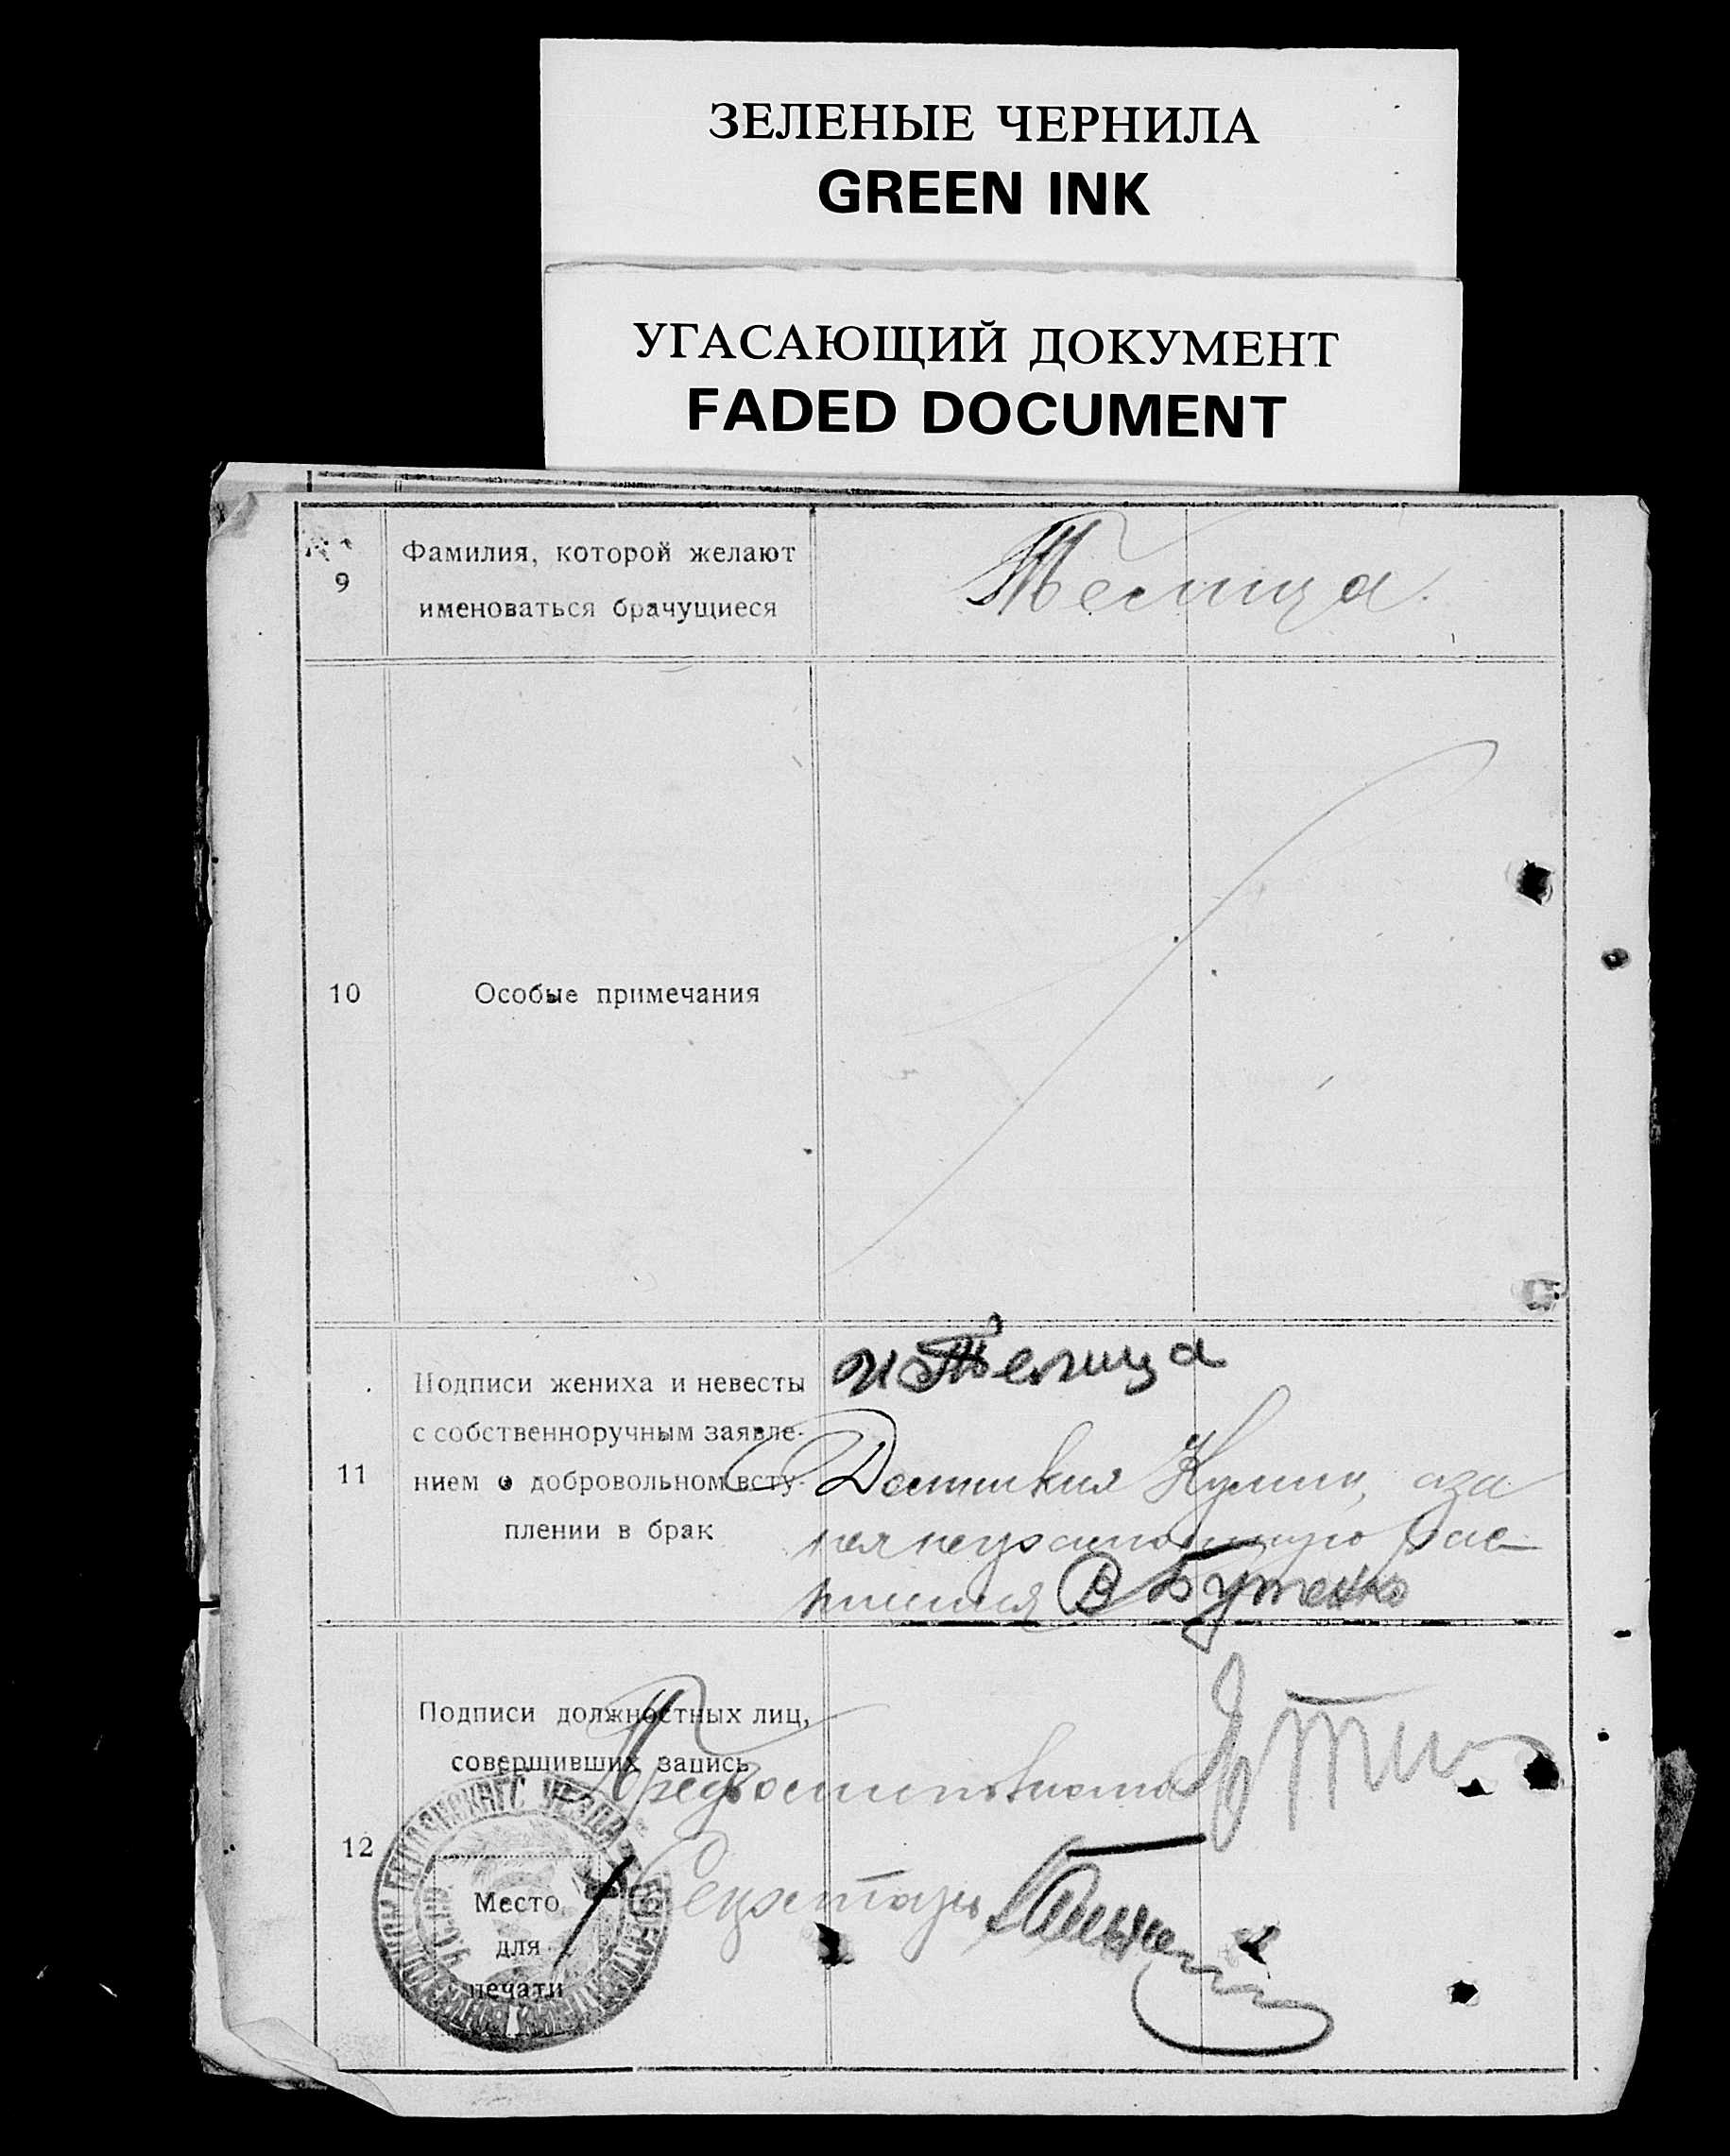 ЗЕЛЕНЫЕ ЧЕРНИЛА
GREEN INK
УГАСАЮЩИЙ ДОКУМЕНТ
FADED DOCUMENT
9
Фамилия, которой желают
именоваться брачущиеся
Телица.
10
Особые примечания
Телица
11
Подписи жениха и невесты
с собственноручным заявле-
нием о добровольном всту-
плении в брак
за
нея неграмотную рас-
писался В Бутенко
12
Подписи должностных лиц,
совершивших запись
Секретарь
Место
для
печати